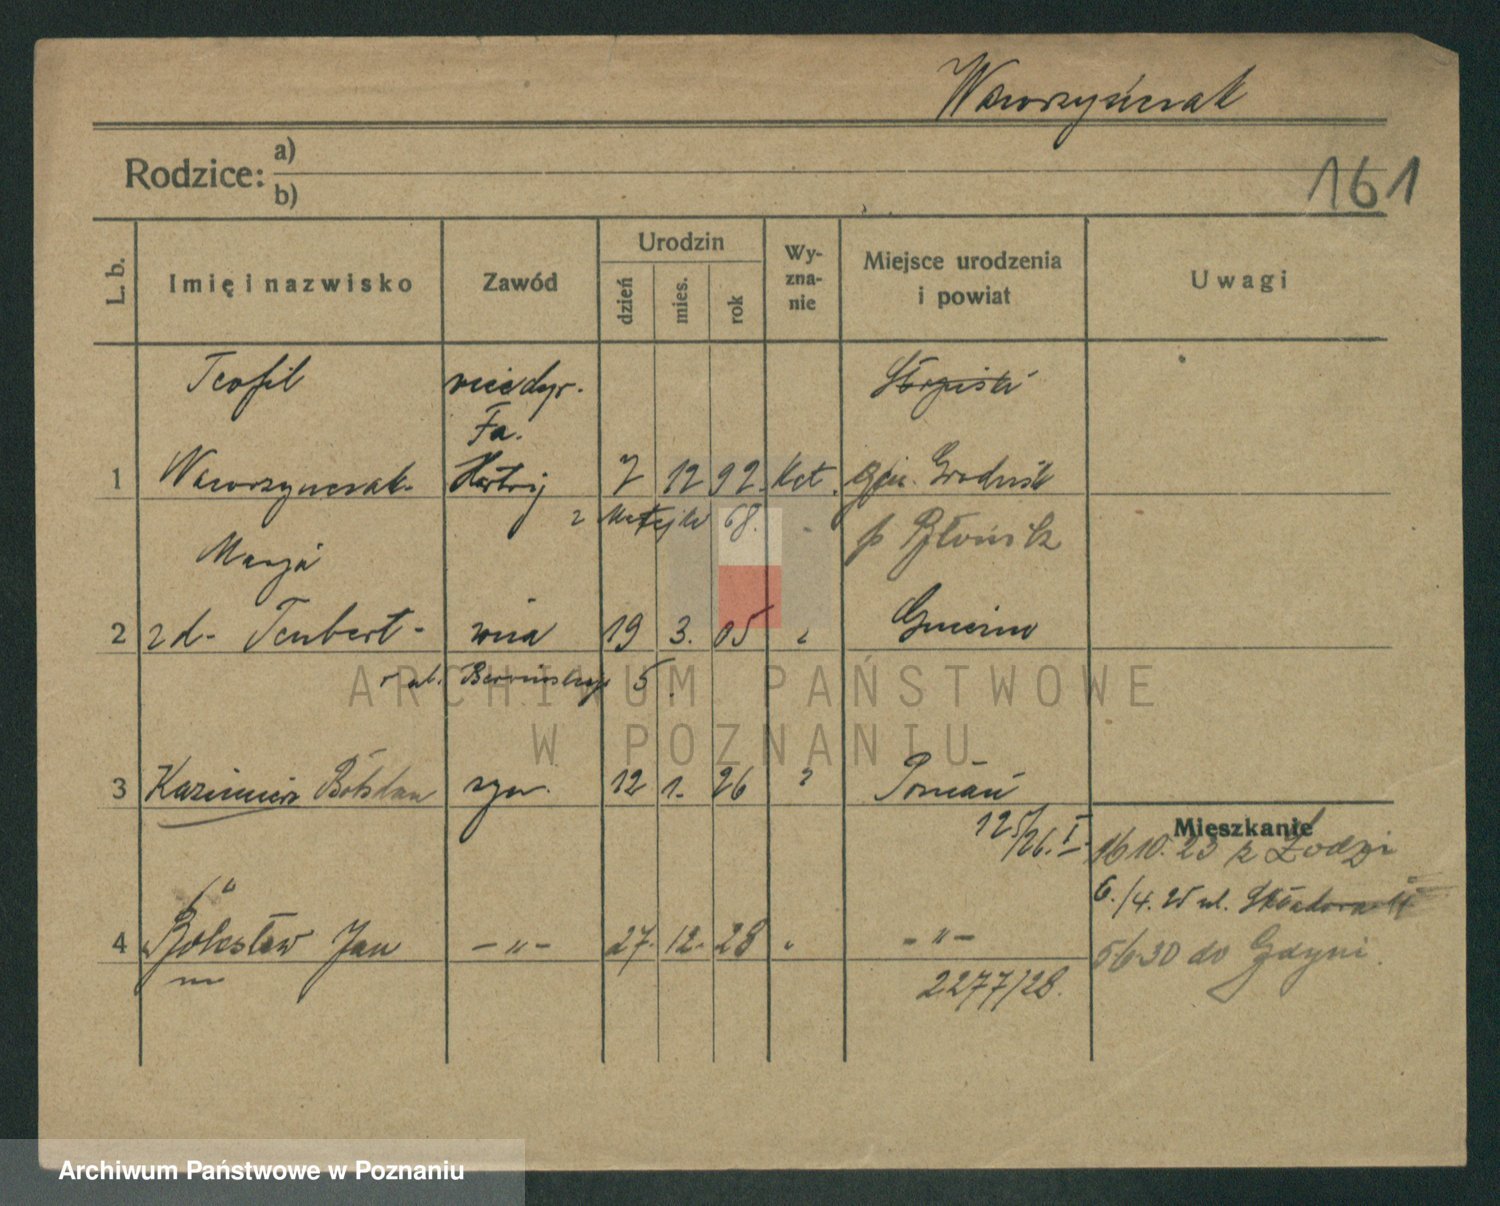 Wawrzyńczak
Rodzice: a)
b)
161
L. b.
Imię i nazwisko
Zawód
Urodzin
dzień
mies.
rok
Wy-
zna-
nie
Miejsce urodzenia
i powiat
Uwagi
Teofil
vicedyr.
Fa.
1 Wawrzynczak Hartwig 7 12 92. kat. gm. Grodzisk
z Matejki 68.
p Błońsk
Marja
2 zd- Teubert - 19 3. 05 Gniezno
ul. Berwińskiego 5.
3 Kazimierz Bohdan syn. 12 1. 26 " Poznań
125/26. I
Mieszkanie
16 10. 23 z Łodzi
6./4. 25 ul. Składowa 4
4 Bolesław Jan - " - 27. 12. 28 " - " -
5/6 30 do Gdyni.
2277/28.
ARCHIWUM PAŃSTWOWE
W POZNANIU
Archiwum Państwowe w Poznaniu